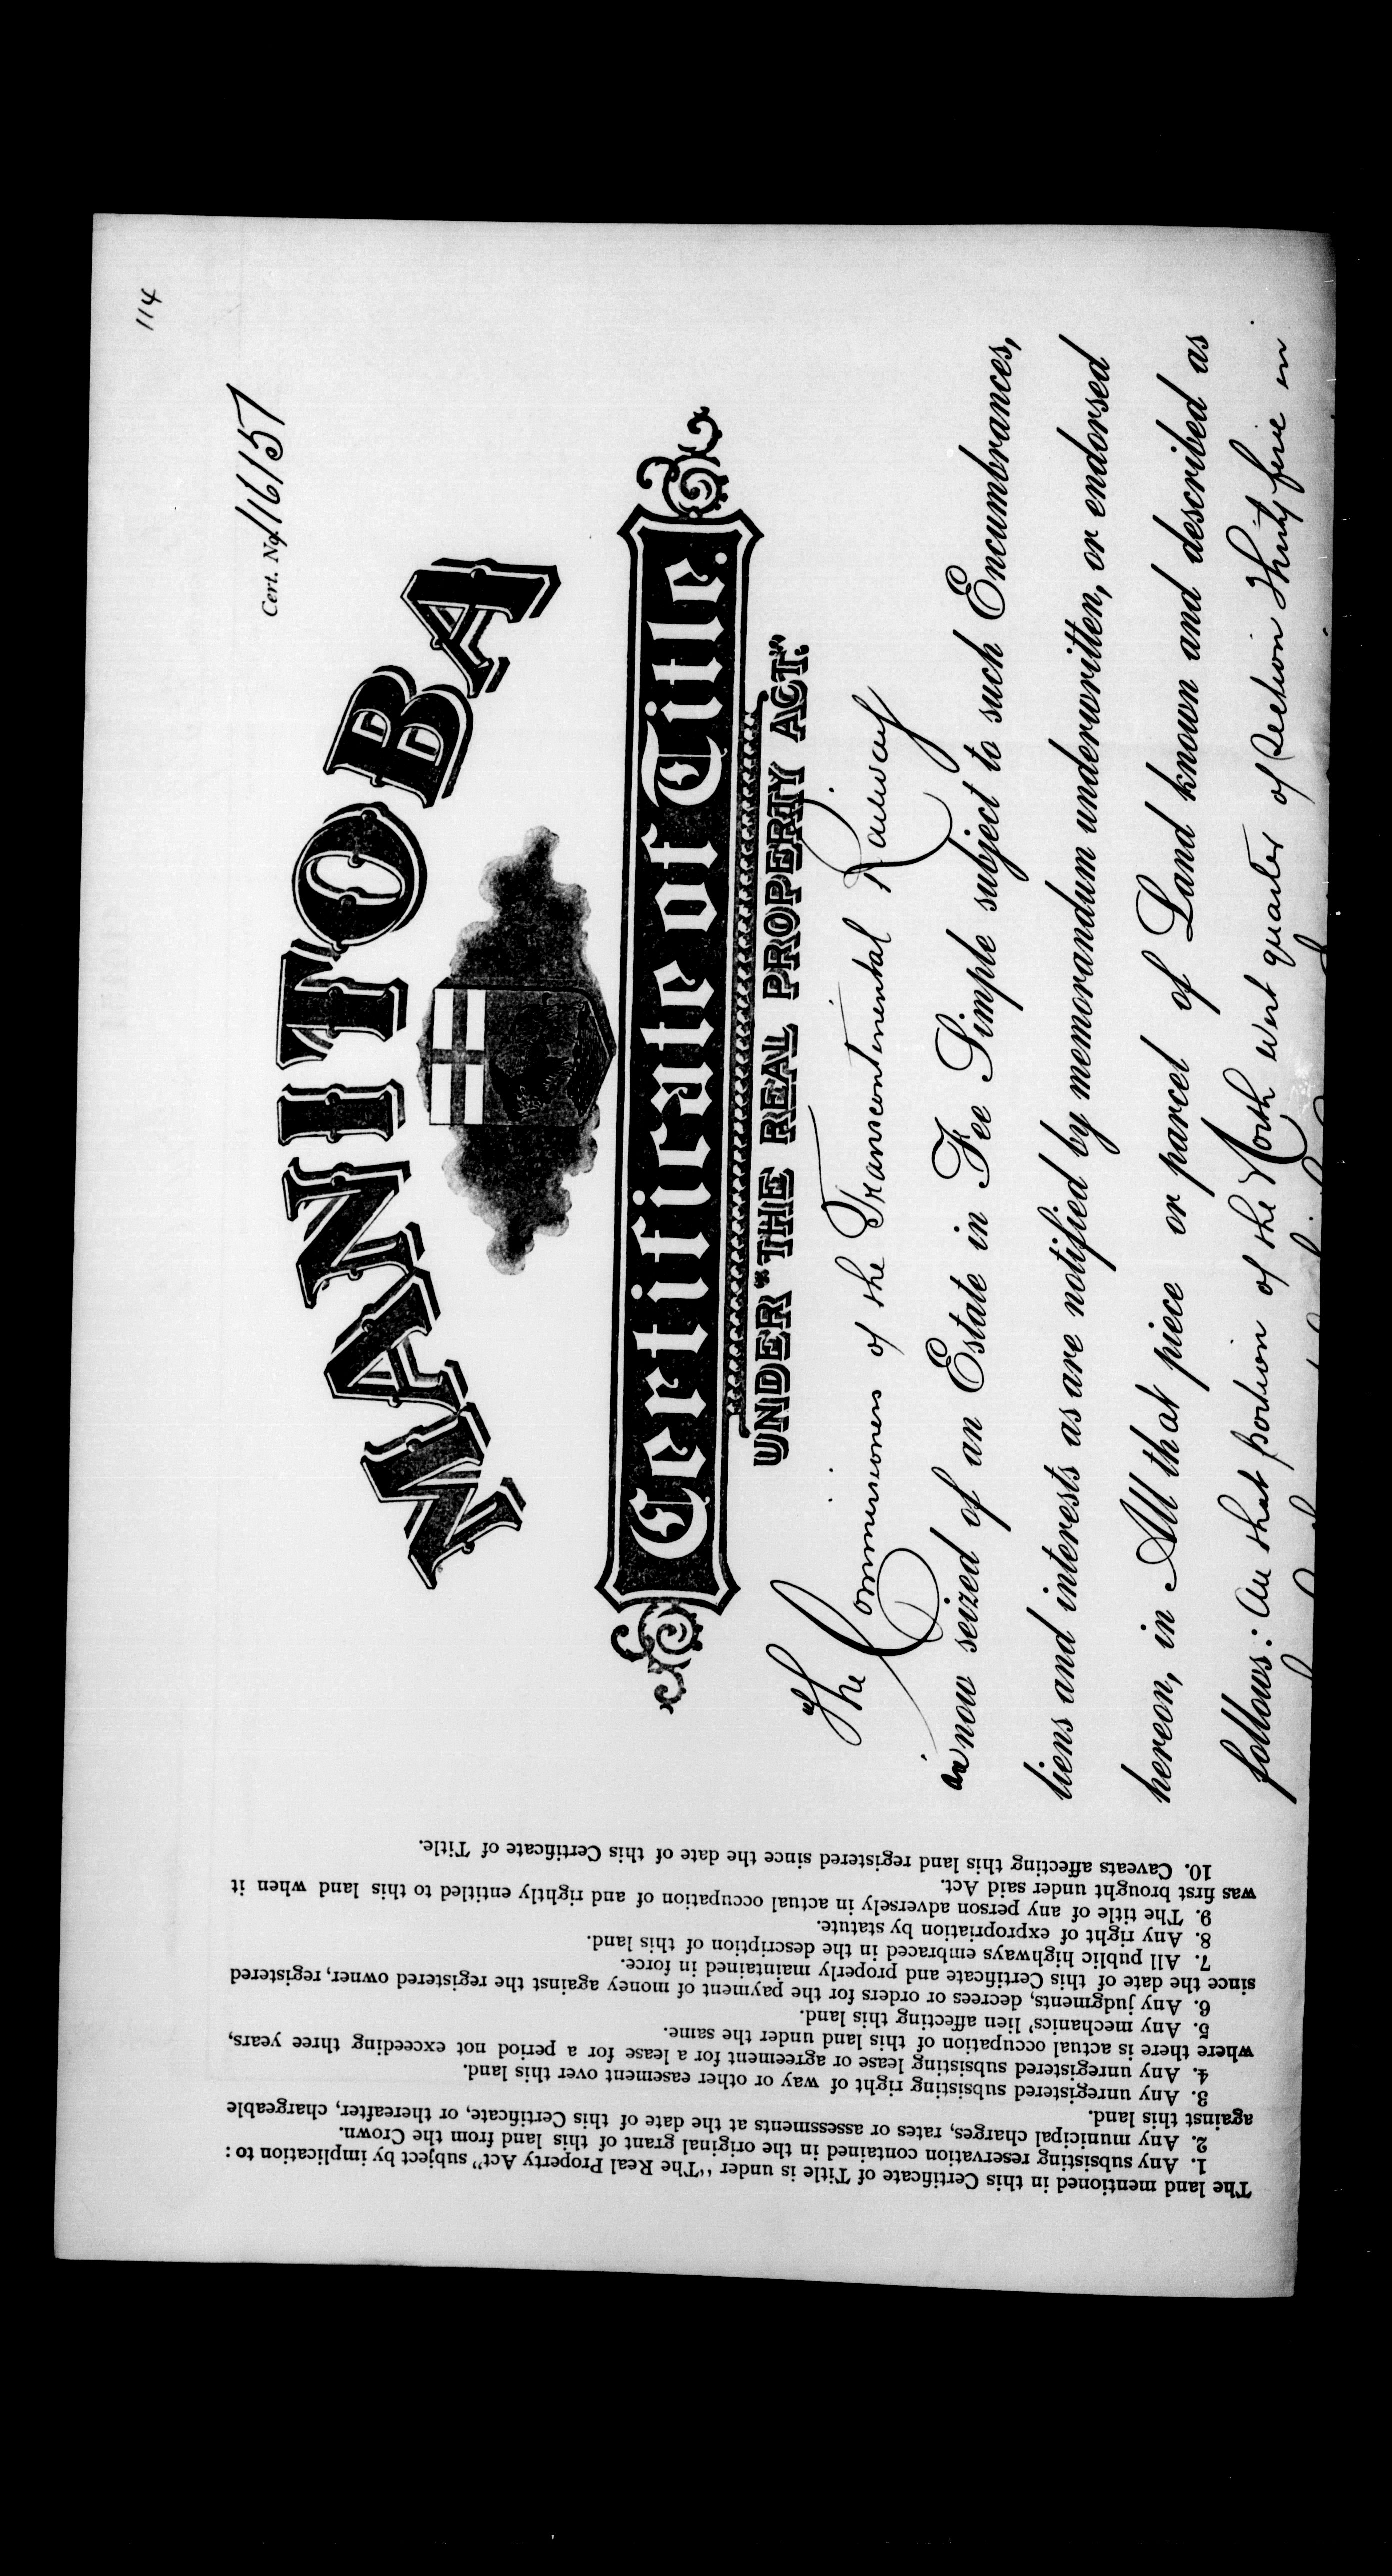 114
Cert. No. 116157
MANITOBA
Certificate of Title.
UNDER "THE REAL PROPERTY ACT."
The Commissioners of the Transcontinental Railway
are now seized of an Estate in Fee Simple subject to such Encumbrances,
liens and interests as are notified by memorandum underwritten, or endorsed
hereon, in All that piece or parcel of Land known and described as
follows: All that portion of the North West quarter of Section Thirty five in
The land mentioned in this Certificate of Title is under "The Real Property Act" subject by implication to:
1. Any subsisting reservation contained in the original grant of this land from the Crown.
2. Any municipal charges, rates or assessments at the date of this Certificate, or thereafter, chargeable
against this land.
3. Any unregistered subsisting right of way or other easement over this land.
4. Any unregistered subsisting lease or agreement for a lease for a period not exceeding three years,
where there is actual occupation of this land under the same.
5. Any mechanics' lien affecting this land.
6. Any judgments, decrees or orders for the payment of money against the registered owner, registered
since the date of this Certificate and properly maintained in force.
7. All public highways embraced in the description of this land.
8. Any right of expropriation by statute.
9. The title of any person adversely in actual occupation of and rightly entitled to this land when it
was first brought under said Act.
10. Caveats affecting this land registered since the date of this Certificate of Title.